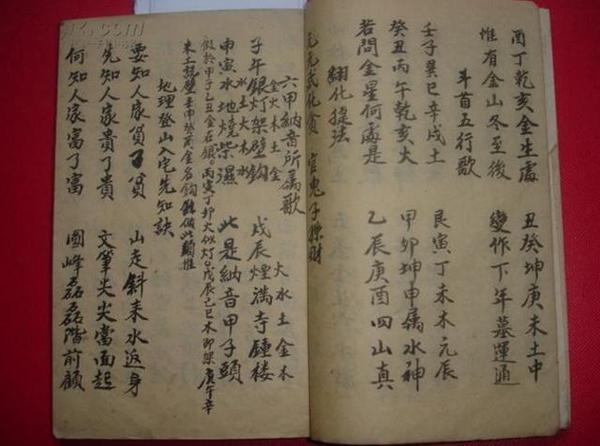 酉丁乾亥金生處 丑癸坤庚未土中
惟有金山冬至後 變作下年墓運通
斗首五行歌
壬子巽巳辛戌土 艮寅丁未木元辰
癸丑丙午乾亥火 甲卯坤申属水神
若問金星何處是 乙辰庚酉四山真
翻化捉法
元元武化貪 官鬼子孫財
六甲納音所属歌
金火木土金 大水土金木
子午銀灯架壁鈎 戊辰煙滿寺鍾楼
水土火木金
申寅水地燒柴濕 此是納音甲子頭
假於甲子乙丑金在銀 丙寅丁卯火似灯 戊辰己巳木即架 庚午辛
未土就壁 壬申癸酉金名鈎 餘倣此類推
地理登山入宅先知訣
要知人家貧了貧 山走斜来水返身
先知人家貴了貴 文筆尖尖當面起
何知人家富了富 圓峰磊磊階前顧